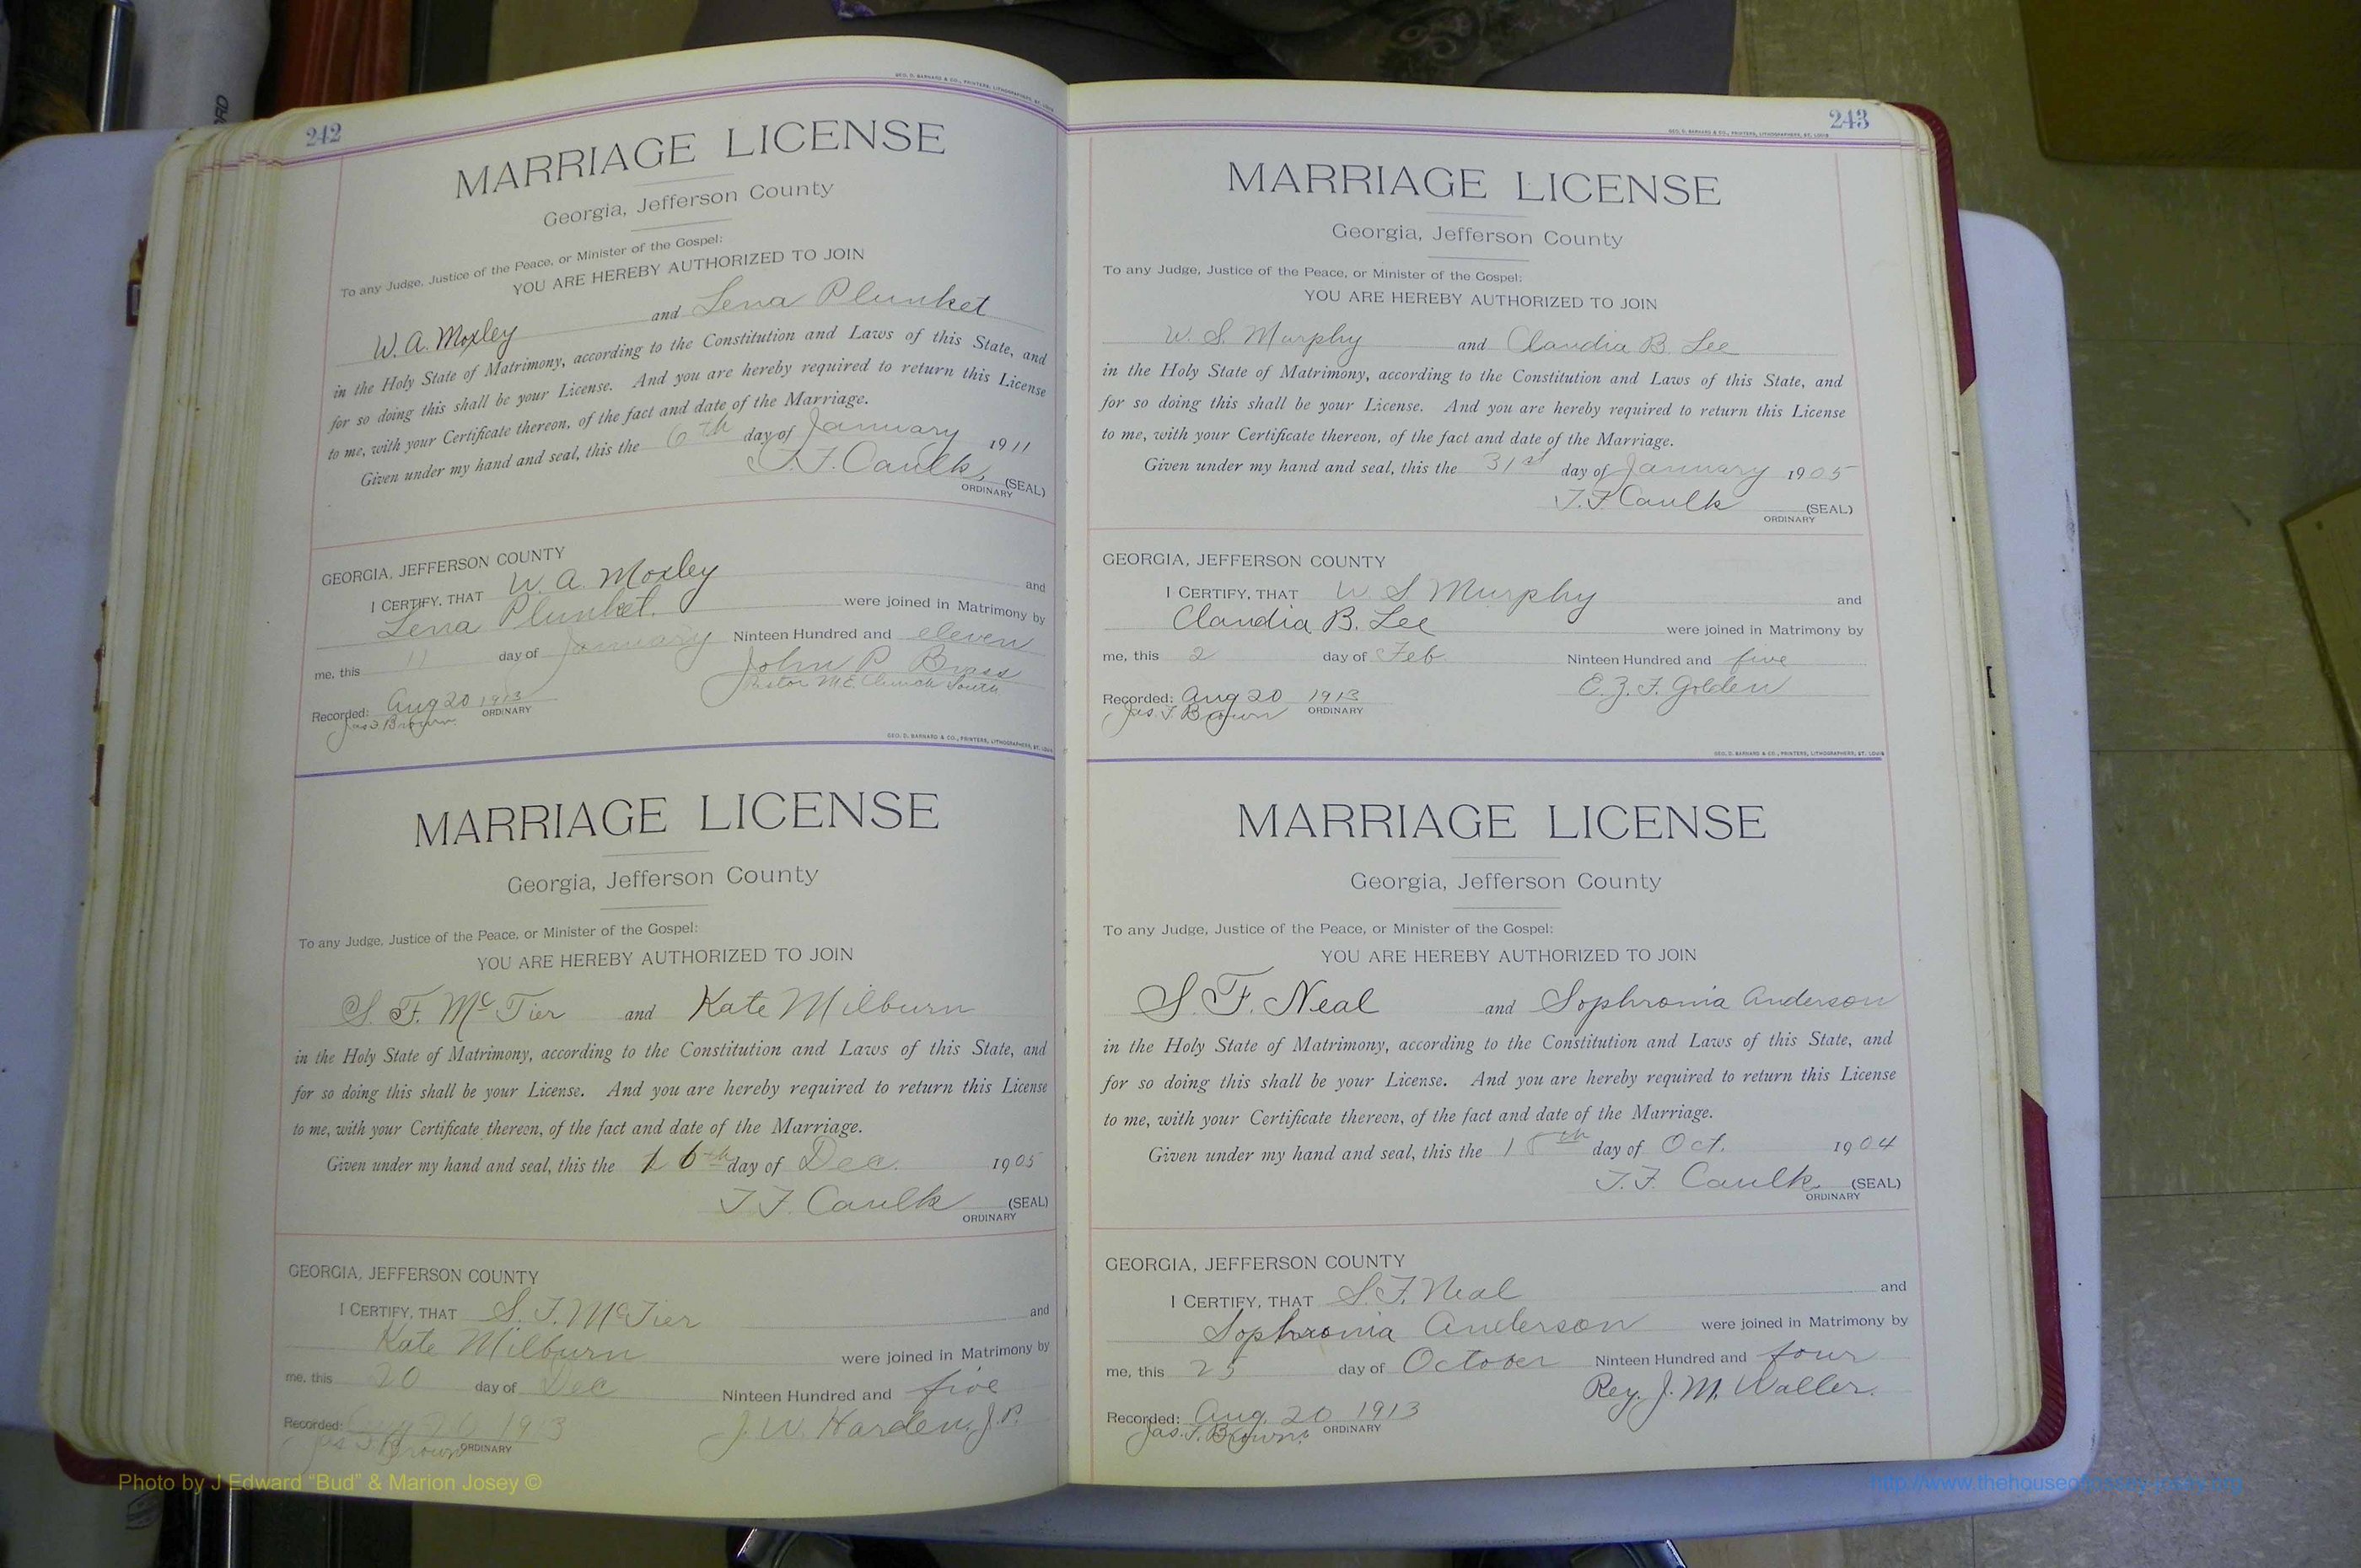 GEO. D. BARNARD & CO., PRINTERS, LITHOGRAPHERS, ST. LOUIS
242
MARRIAGE LICENSE
Georgia, Jefferson County
To any Judge, Justice of the Peace, or Minister of the Gospel:
YOU ARE HEREBY AUTHORIZED TO JOIN
W. A. Moxley and Lena Plunket
in the Holy State of Matrimony, according to the Constitution and Laws of this State, and
for so doing this shall be your License. And you are hereby required to return this License
to me, with your Certificate thereon, of the fact and date of the Marriage.
Given under my hand and seal, this the 6th day of January 1911
T. F. Caulk, (SEAL)
ORDINARY
GEORGIA, JEFFERSON COUNTY
I CERTIFY, THAT W. A. Moxley and
Lena Plunket. were joined in Matrimony by
me, this 11 day of January Ninteen Hundred and eleven
John P.
Pastor M.E. Church South
Recorded: Aug 20 1913
Jas. T. Brown. ORDINARY
GEO. D. BARNARD & CO., PRINTERS, LITHOGRAPHERS, ST. LOUIS
MARRIAGE LICENSE
Georgia, Jefferson County
To any Judge, Justice of the Peace, or Minister of the Gospel:
YOU ARE HEREBY AUTHORIZED TO JOIN
S. F. McTier and Kate Milburn
in the Holy State of Matrimony, according to the Constitution and Laws of this State, and
for so doing this shall be your License. And you are hereby required to return this License
to me, with your Certificate thereon, of the fact and date of the Marriage.
Given under my hand and seal, this the 16th day of Dec. 1905
T. F. Caulk (SEAL)
ORDINARY
GEORGIA, JEFFERSON COUNTY
I CERTIFY, THAT S. F. McTier and
Kate Milburn were joined in Matrimony by
me, this 20 day of Dec Ninteen Hundred and five
J. W. Harden, J.P.
Recorded: Aug 20 1913
Jas. T. Brown ORDINARY
243
GEO. D. BARNARD & CO., PRINTERS, LITHOGRAPHERS, ST. LOUIS
MARRIAGE LICENSE
Georgia, Jefferson County
To any Judge, Justice of the Peace, or Minister of the Gospel:
YOU ARE HEREBY AUTHORIZED TO JOIN
W. S. Murphy and Claudia B. Lee
in the Holy State of Matrimony, according to the Constitution and Laws of this State, and
for so doing this shall be your License. And you are hereby required to return this License
to me, with your Certificate thereon, of the fact and date of the Marriage.
Given under my hand and seal, this the 31st day of January 1905
T. F. Caulk (SEAL)
ORDINARY
GEORGIA, JEFFERSON COUNTY
I CERTIFY, THAT W. S. Murphy and
Claudia B. Lee were joined in Matrimony by
me, this 2 day of Feb. Ninteen Hundred and five
E. Z. F. Golden
Recorded: Aug 20 1913
Jas. T. Brown ORDINARY
GEO. D. BARNARD & CO., PRINTERS, LITHOGRAPHERS, ST. LOUIS
MARRIAGE LICENSE
Georgia, Jefferson County
To any Judge, Justice of the Peace, or Minister of the Gospel:
YOU ARE HEREBY AUTHORIZED TO JOIN
S. F. Neal and Sophronia Anderson
in the Holy State of Matrimony, according to the Constitution and Laws of this State, and
for so doing this shall be your License. And you are hereby required to return this License
to me, with your Certificate thereon, of the fact and date of the Marriage.
Given under my hand and seal, this the day of Oct. 1904
T. F. Caulk. (SEAL)
ORDINARY
GEORGIA, JEFFERSON COUNTY
I CERTIFY, THAT S. F. Neal and
Sophronia Anderson were joined in Matrimony by
me, this 25 day of October Ninteen Hundred and four
Rev. J. M. Waller.
Recorded: Aug. 20 1913
Jas. T. Brown. ORDINARY
Photo by J Edward "Bud" & Marion Josey ©